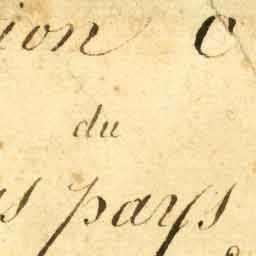 ion C
du
s pays